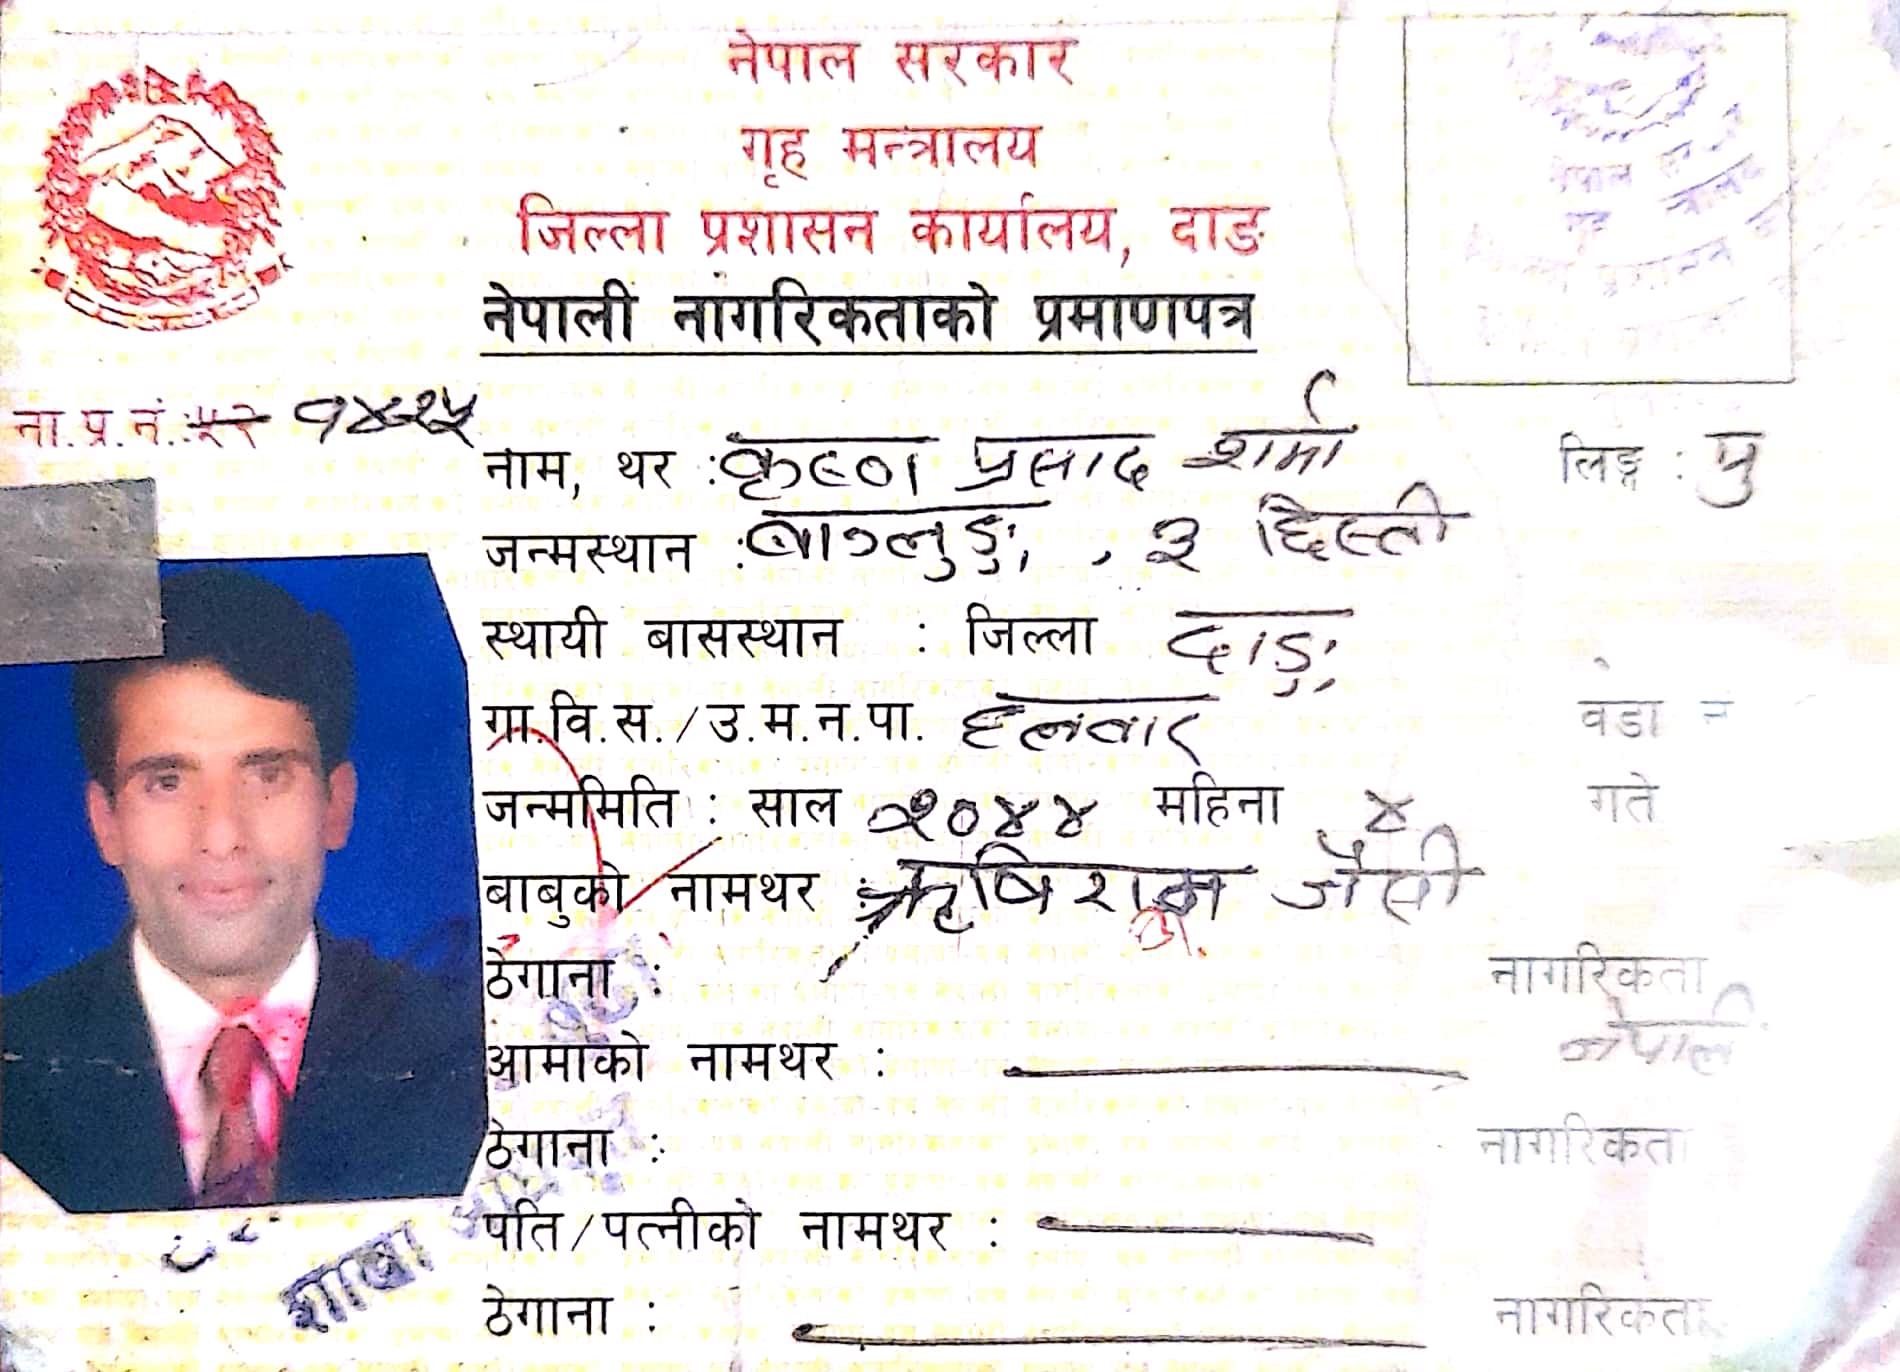 नेपाल सरकार
गृह मन्त्रालय
जिल्ला प्रशासन कार्यालय, दाङ
नेपाली नागरिकताको प्रमाणपत्र
ना.प्र.नं.: १४२५
नाम, थर : कृष्ण प्रसाद शर्मा लिङ्ग : पु
जन्मस्थान : बाग्लुङ, ३ हिल्ली
स्थायी बासस्थान : जिल्ला दाङ
ग्रा.वि.स./उ.म.न.पा. हलवार वडा नं
जन्ममिति : साल २०४४ महिना ४ गते
बाबुको नामथर : ऋषिराम जैसी
ठेगाना : नागरिकता
नेपाली
आमाको नामथर :
ठेगाना : नागरिकता
पति/पत्नीको नामथर :
शाखा
ठेगाना : नागरिकता